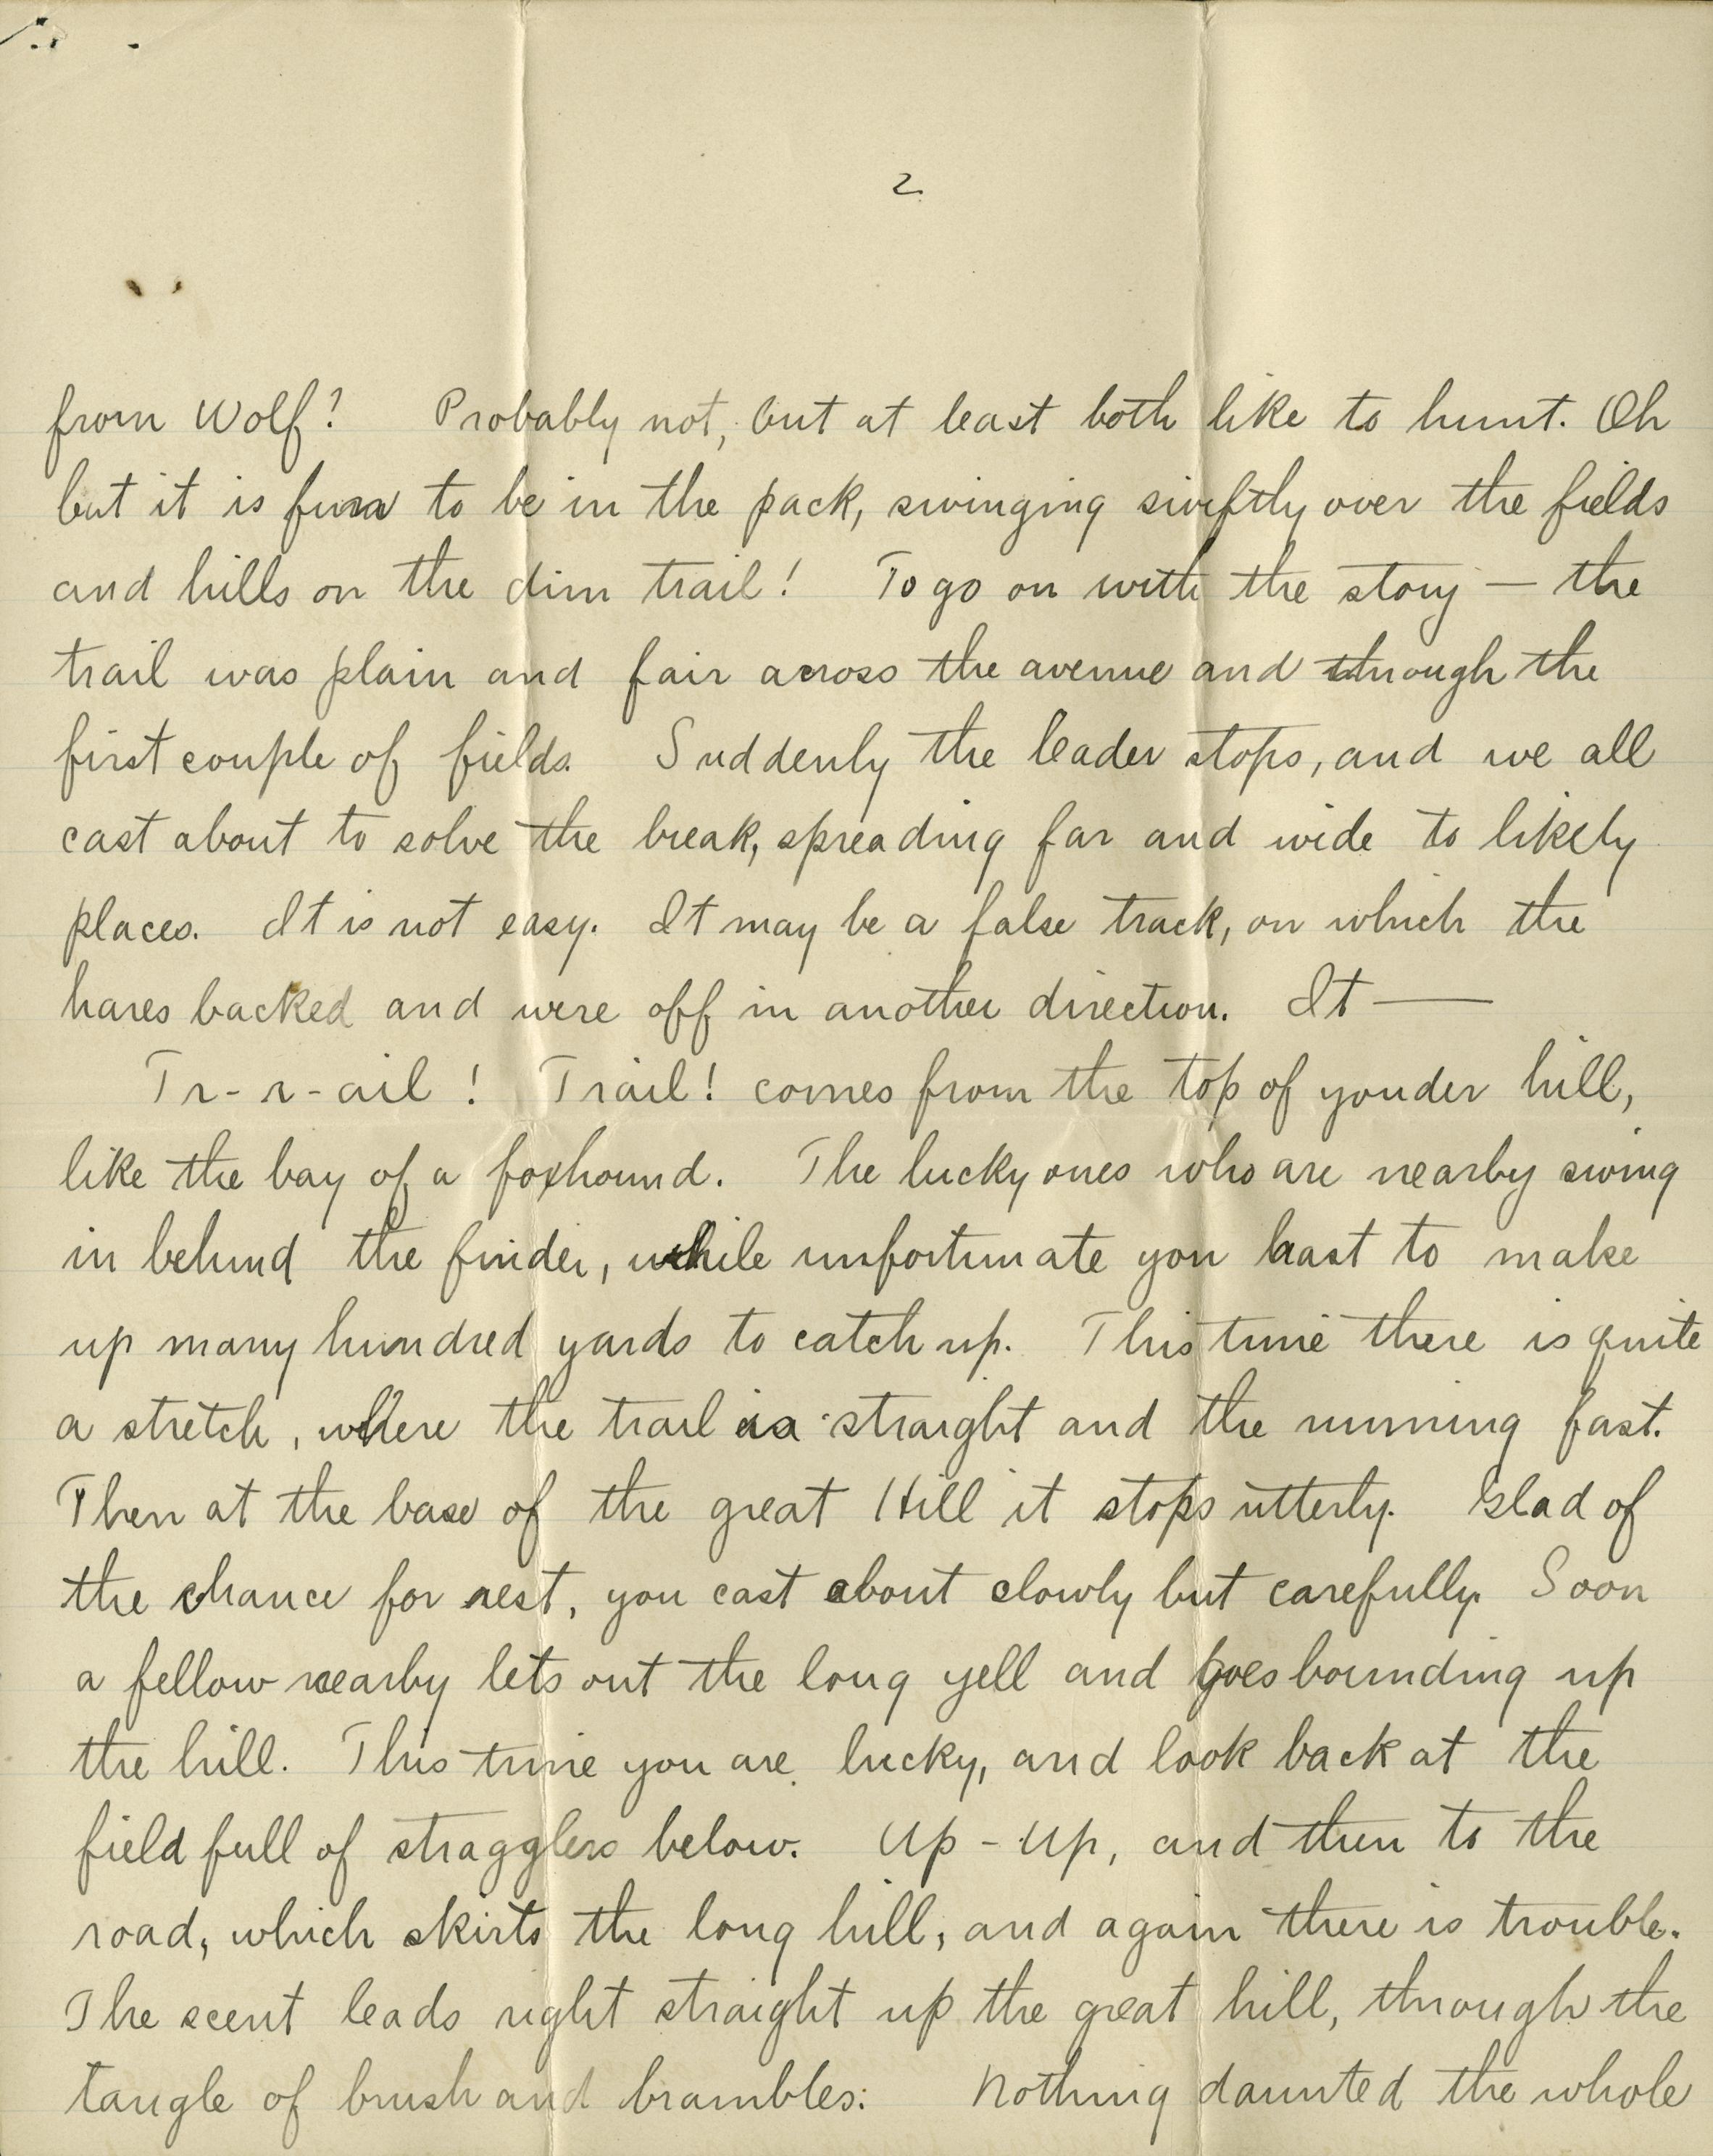 2.
from Wolf? Probably not, but at least both like to hunt. Oh
but it is fun to be in the pack, swinging swiftly over the fields
and hills on the dim trail! To go on with the story — the
trail was plain and fair across the avenue and through the
first couple of fields. Suddenly the leader stops, and we all
cast about to solve the break, spreading far and wide to likely
places. It is not easy. It may be a false track, on which the
hares backed and were off in another direction. It —
Tr-r-ail! Trail! comes from the top of yonder hill,
like the bay of a foxhound. The lucky ones who are nearby swing
in behind the finder, while unfortunate you hast to make
up many hundred yards to catch up. This time there is quite
a stretch, where the trail is straight and the running fast.
Then at the base of the great Hill it stops utterly. Glad of
the chance for rest, you cast about slowly but carefully. Soon
a fellow nearby lets out the long yell and goes bounding up
the hill. This time you are lucky, and look back at the
field full of stragglers below. Up - Up, and then to the
road, which skirts the long hill, and again there is trouble.
The scent leads right straight up the great hill, through the
tangle of brush and brambles: Nothing daunted the whole